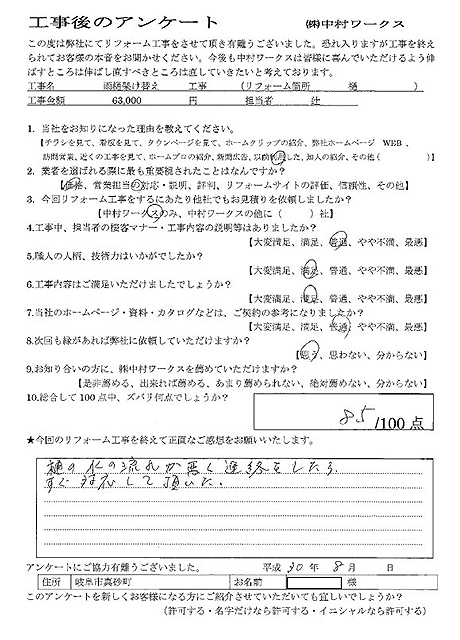 工事後のアンケート　㈱中村ワークス
この度は弊社にてリフォーム工事をさせて頂き有難うございました。恐れ入りますが工事を終え
られてお客様の本音をお聞かせください。今後も中村ワークスは皆様に喜んでいただけるよう伸
ばすところは伸ばし直すべきところは直していきたいと考えております。
工事名　雨樋架け替え　工事　（リフォーム箇所　樋　）
工事金額　63,000　円　担当者　辻
1. 当社をお知りになった理由を教えてください。
【チラシを見て、看板を見て、タウンページを見て、ホームクリップの紹介、弊社ホームページ　WEB、
訪問営業、近くの工事を見て、ホームプロの紹介、新聞広告、以前利用した、知人の紹介、その他（　）】
2. 業者を選ばれる際に最も重要視されたことはなんですか？
【価格、営業担当の対応・説明、評判、リフォームサイトの評価、信頼性、その他】
3. 今回リフォーム工事をするにあたり他社でもお見積りを依頼しましたか？
【中村ワークスのみ、中村ワークスの他に（　）社】
4.工事中、担当者の接客マナー・工事内容の説明等はありましたか？
【大変満足、満足、普通、やや不満、最悪】
5.職人の人柄、技術力はいかがでしたか？
【大変満足、満足、普通、やや不満、最悪】
6.工事内容はご満足いただけましたでしょうか？
【大変満足、満足、普通、やや不満、最悪】
7.当社のホームページ・資料・カタログなどは、ご契約の参考になりましたか？
【大変満足、満足、普通、やや不満、最悪】
8.次回も縁があれば弊社に依頼していただけますか？
【思う、思わない、分からない】
9.お知り合いの方に、㈱中村ワークスを薦めていただけますか？
【是非薦める、出来れば薦める、あまり薦められない、絶対薦めない、分からない】
10.総合して100点中、ズバリ何点でしょうか？
85/100点
★今回のリフォーム工事を終えて正直なご感想をお願いいたします。
樋の水の流れが悪く連絡をしたら、
すぐ対応して頂いた。
アンケートにご協力有難うございました。　平成 30 年 8 月　日
住所　岐阜市真砂町　お名前　様
このアンケートを新しくお客様になる方にご紹介させていただいても宜しいでしょうか？
（許可する・名字だけなら許可する・イニシャルなら許可する）